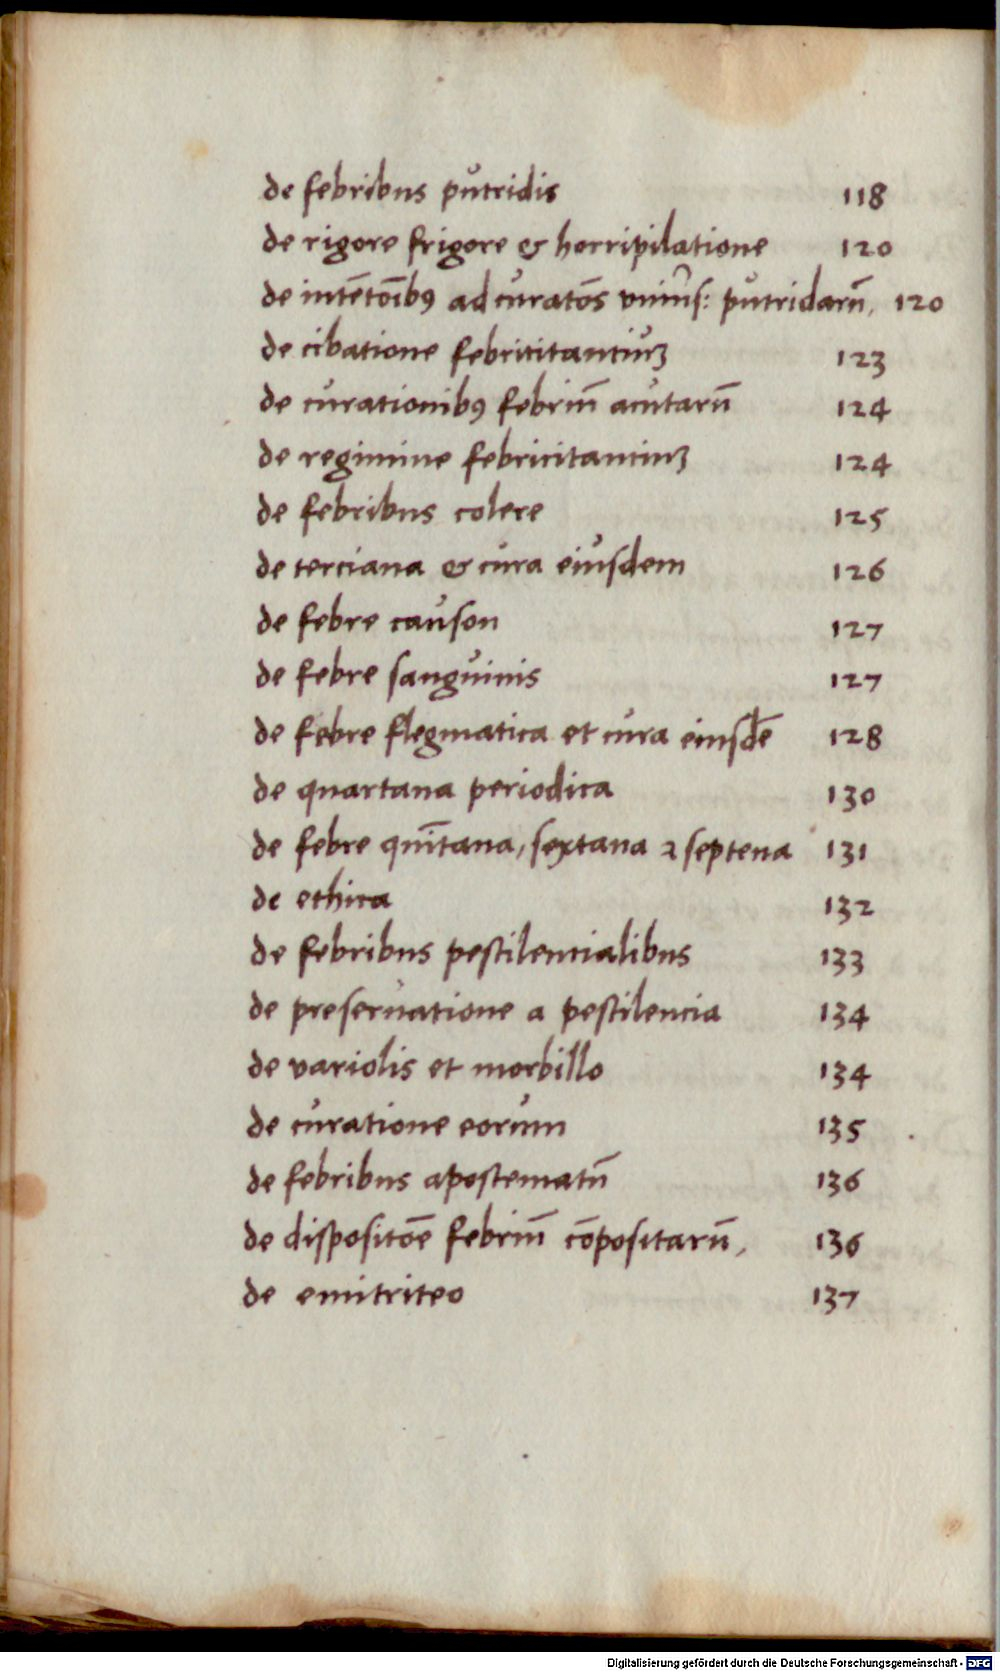 de febribus putridis 118
de rigore frigore & horripilatione 120
de inte͂to͂ibꝰ ad curato͂s vniu͛s: putridaru͂, 120
de cibatione febrititantiuꝫ 123
de curationibꝰ febriu͂ acutaru͂ 124
de regimine febricitantiuꝫ 124
de febribus colere 125
de terciana & cura eiusdem 126
de febre causon 127
de febre sanguinis 127
de febre flegmatica et cura eiusde͂ 128
de quartana periodica 130
de febre qui͂tana, sextana ⁊ septena 131
de ethica 132
de febribus pestilencialibus 133
de preseruatione a pestilencia 134
de variolis et morbillo 134
de curatione eorum 135
de febribus apostematu͂ 136
de disposito͂e febriu͂ co͂positaru͂, 136
de emitriteo 137
Digitalisierung gefördert durch die Deutsche Forschungsgemeinschaft - DFG